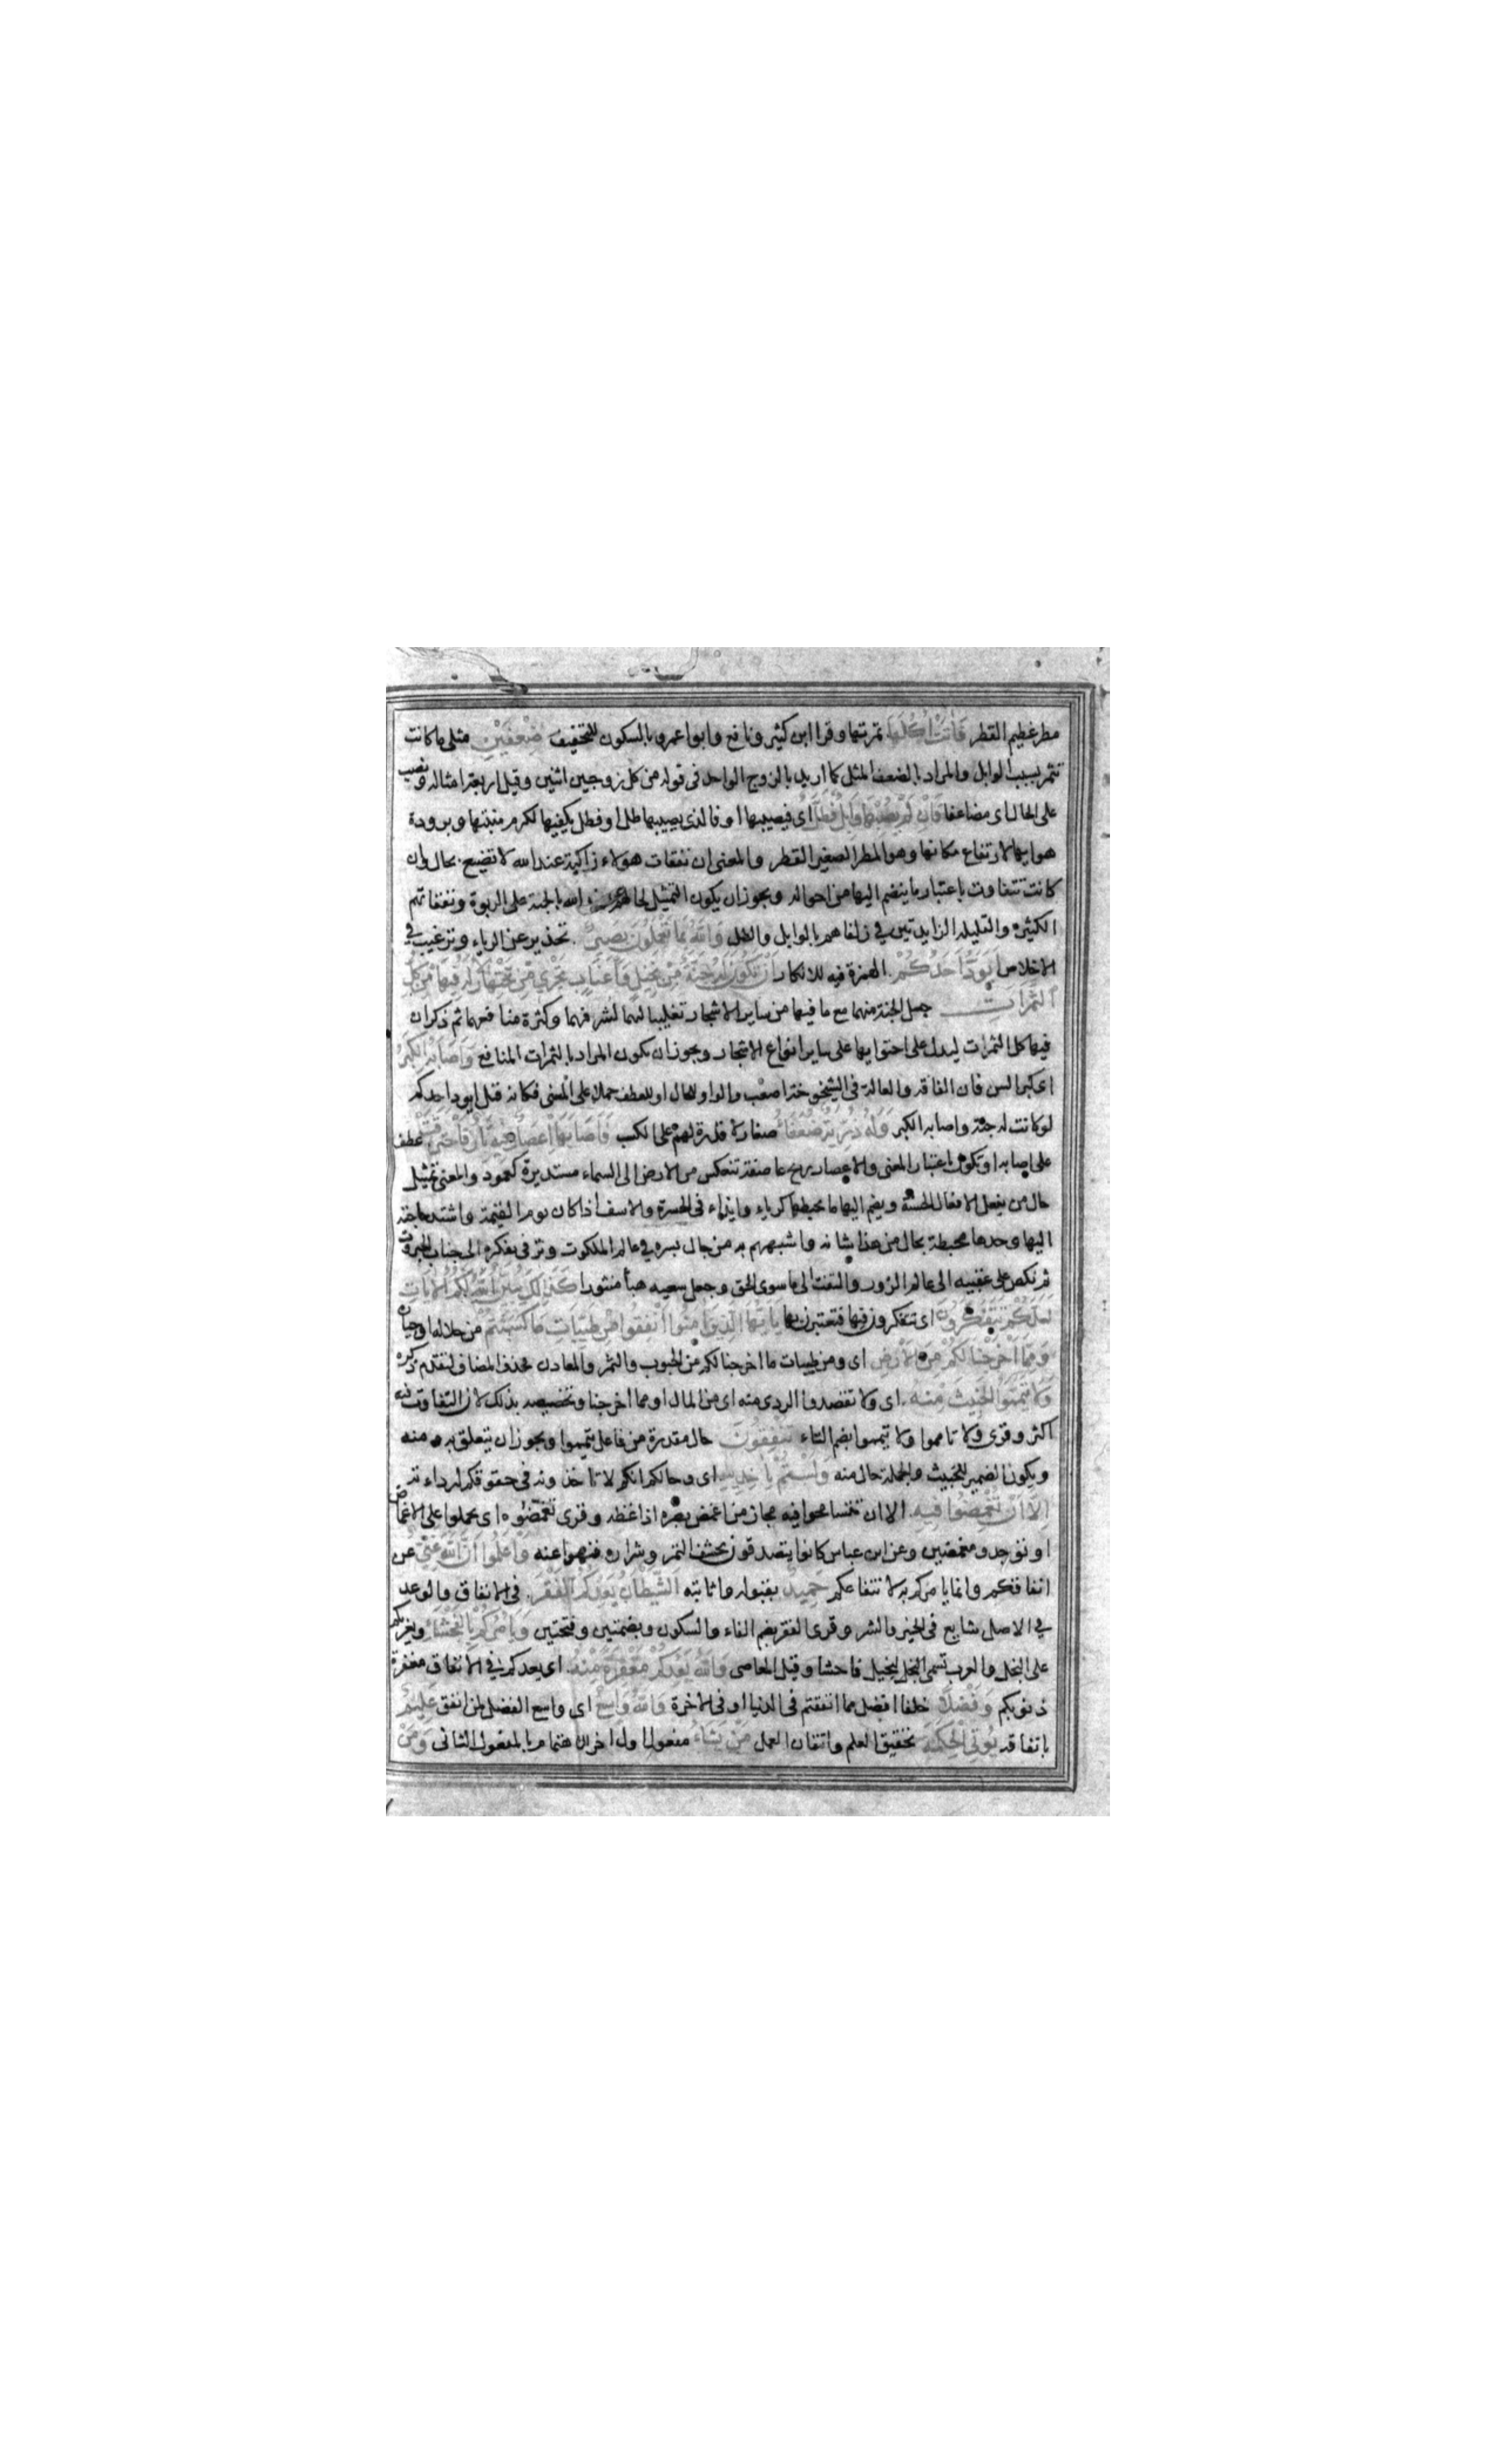 مطر عظيم القطر فَاٰتَتْ اُكُلَهَا ثمرتها وقرا ابن كثير ونافع وابوا عمرو بالسكون للتخفيف ضِعْفَيْنِ مثلي ما كانت
تثمر بسبب الوابل والمراد بالضعف المثل كما اريد بالزوج الواحد في قوله من كل زوجين اثنين وقيل اربعة امثاله ونصب
على الحال اى مضاعفا فَاِنْ لَمْ يُصِبْهَا وَابِلٌ فَطَلٌّ اى فيصيبها او فالذى يصيبها طل او فطل يكفيها لكرم منبتها وبرودة
هوايها لارتفاع مكانها وهو المطر الصغير القطر والمعنى ان نفقات هولاء زاكية عند الله لا تضيع بحال وان
كانت تتفاوت باعتبار ما ينضم اليها من احواله ويجوز ان يكون التمثيل لحالهم عند الله بالجنة على الربوة ونفقاتهم
الكثيره والقليله الزايدتين في زلفاهم بالوابل والطل وَاللهُ بِمَا تَعْمَلُونَ بَصِيرٌ تحذير عن الرياء وترغيب في
الاخلاص اَيَوَدُّ اَحَدُكُمْ الهمزة فيه للانكار اَنْ تَكُونَ لَهُ جَنَّةٌ مِنْ نَخِيلٍ وَاَعْنَابٍ تَجْرِي مِنْ تَحْتِهَا الْاَنْهَارُ لَهُ فِيهَا مِنْ كُلِّ
الثَّمَرَاتِ جعل الجنة منهما مع ما فيها من ساير الاشجار تغليبا لهما لشرفهما وكثرة منافعهما ثم ذكر ان
فيها كل الثمرات ليدل على احتوايها على ساير انواع الاشجار ويجوز ان يكون المراد بالثمرات المنافع وَاَصَابَهُ الْكِبَرُ
اى كبر السن فان الفاقة والعالة في الشيخوخة اصعب والواو للحال او للعطف حملا على المعنى فكانه قيل ايود احدكم
لو كانت له جنة واصابه الكبر وَلَهُ ذُرِّيَّةٌ ضُعَفَاءُ صغار لا قدرة لهم على الكسب فَاَصَابَهَا اِعْصَارٌ فِيهِ نَارٌ فَاحْتَرَقَتْ عطف
على اصابه او تكون باعتبار المعنى والاعصار ريح عاصفة تنعكس من الارض الى السماء مستديرة كعمود والمعنى تمثيل
حال من يفعل الافعال الحسنة ويضم اليها ما يحبطها كرياء وايذاء في الحسرة والاسف اذا كان يوم القيمة واشتد حاجته
اليها وجدها محبطة بحال من هذا شانه واشبههم به من جال بسره في عالم الملكوت وترقى بفكره الى جناب الجبروت
ثم نكص على عقبيه الى عالم الزور والتفت الى ما سوى الحق وجعل سعيه هبأ منثورا كَذٰلِكَ يُبَيِّنُ اللهُ لَكُمُ الْاٰيَاتِ
لَعَلَّكُمْ تَتَفَكَّرُونَ اى تتفكرون فيها فتعتبرن بها يَا اَيُّهَا الَّذِينَ اٰمَنُوا اَنْفِقُوا مِنْ طَيِّبَاتِ مَا كَسَبْتُمْ من حلاله او جياده
وَمِمَّا اَخْرَجْنَا لَكُمْ مِنَ الْاَرْضِ اى ومن طيبات ما اخرجنا لكم من الحبوب والثمر والمعادن فحذف المضاف لتقدم ذكره
وَلَا تَيَمَّمُوا الْخَبِيثَ مِنْهُ اى ولا تقصدوا الردى منه اى من المال او مما اخرجنا وتخصيصه بذلك لان التفاوت فيه
اكثر وقرى ولا تامموا ولا تيمموا بضم التاء تُنْفِقُونَ حال مقدرة من فاعل تيمموا ويجوز ان يتعلق به منه
ويكون الضمير للخبيث والجملة حال منه وَلَسْتُمْ بِاٰخِذِيهِ اى وحالكم انكم لا تاخذونه في حقوقكم لرداءته
اِلَّا اَنْ تُغْمِضُوا فِيهِ الا ان تتسامحوا فيه مجاز من اغمض بصره اذا غضه وقرى تغمضوه اى تحملوا على الاغماض
او توجدو مغمضين وعن ابن عباس كانوا يتصدقون بحشف التمر وشراره فنهوا عنه وَاعْلَمُوا اَنَّ اللهَ غَنِيٌّ عن
انفاقكم وانما يامركم به لانتفاعكم حَمِيدٌ بقبوله واثابته اَلشَّيْطَانُ يَعِدُكُمُ الْفَقْرَ في الانفاق والوعد
في الاصل شايع في الخير والشر وقرى الفقر بضم الفاء والسكون وبضمتين وفتحتين وَيَاْمُرُكُمْ بِالْفَحْشَاءِ ويغريكم
على البخل والعرب تسمى البخل البخيل فاحشا وقيل المعاصى وَاللهُ يَعِدُكُمْ مَغْفِرَةً مِنْهُ اى يعدكم في الانفاق مغفرة
ذنوبكم وَفَضْلًا خلفا افضل مما انفقتم في الدنيا او في الاخرة وَاللهُ وَاسِعٌ اى واسع الفضل لمن انفق عَلِيمٌ
بانفاقه يُؤْتِي الْحِكْمَةَ تحقيق العلم واتقان العمل مَنْ يَشَاءُ مفعول اول اخر للاهتمام بالمفعول الثانى وَمَنْ